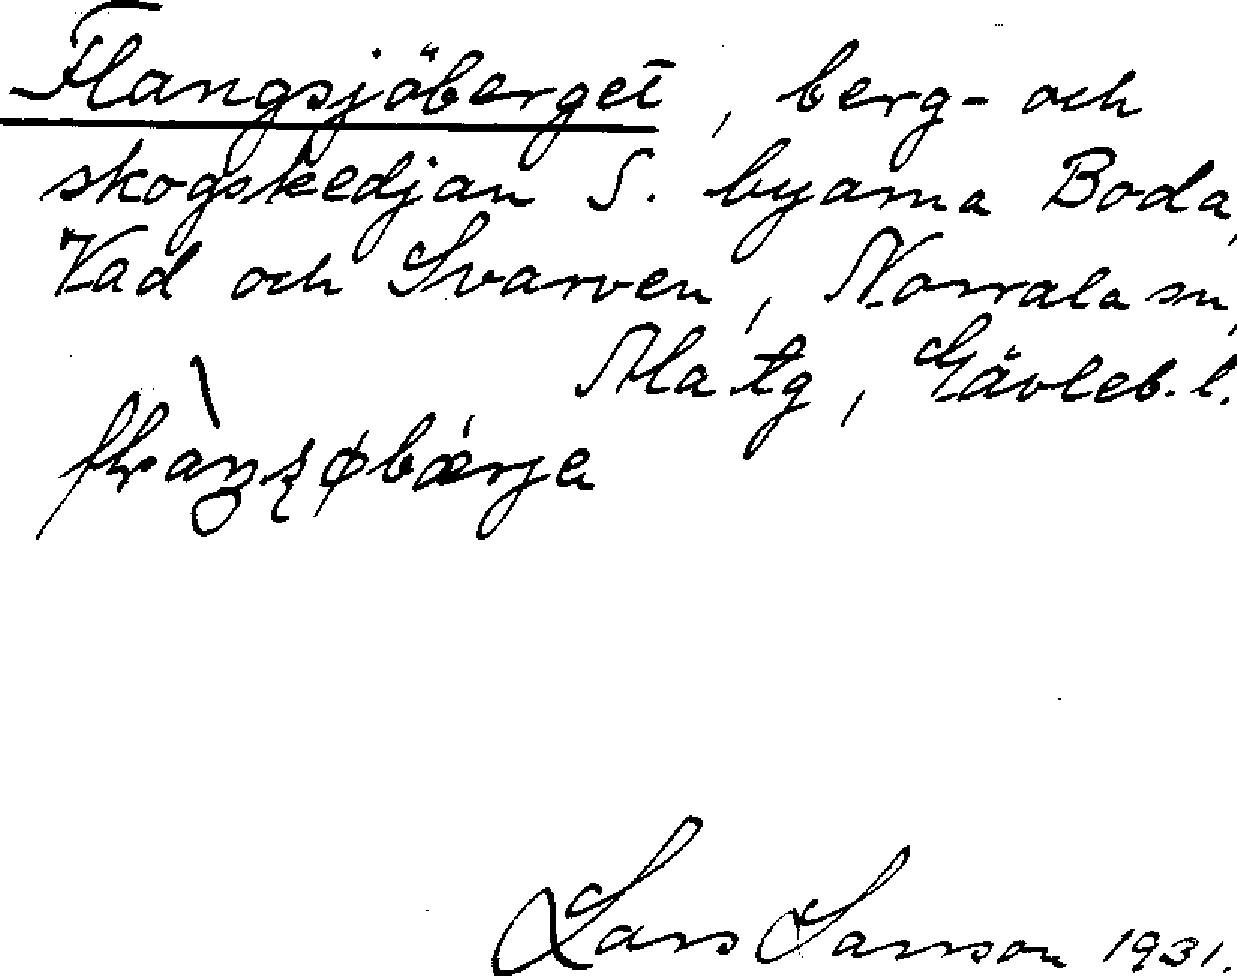 Flangsjöberget, berg- och
skogskedjan S. byarna Boda,
Vad och Svarven, Norrala sn,
Ala tg, Gävleb. l.
Lars Larsson 1931.